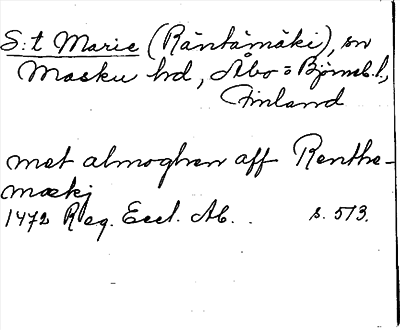 S:t Marie (Räntämäki), sn
Masku hd, Åbo o Björneb. l.,
Finland
met almoghen aff Renthe-
mækj
1472 Reg. Eccl. Ab. . s. 513.